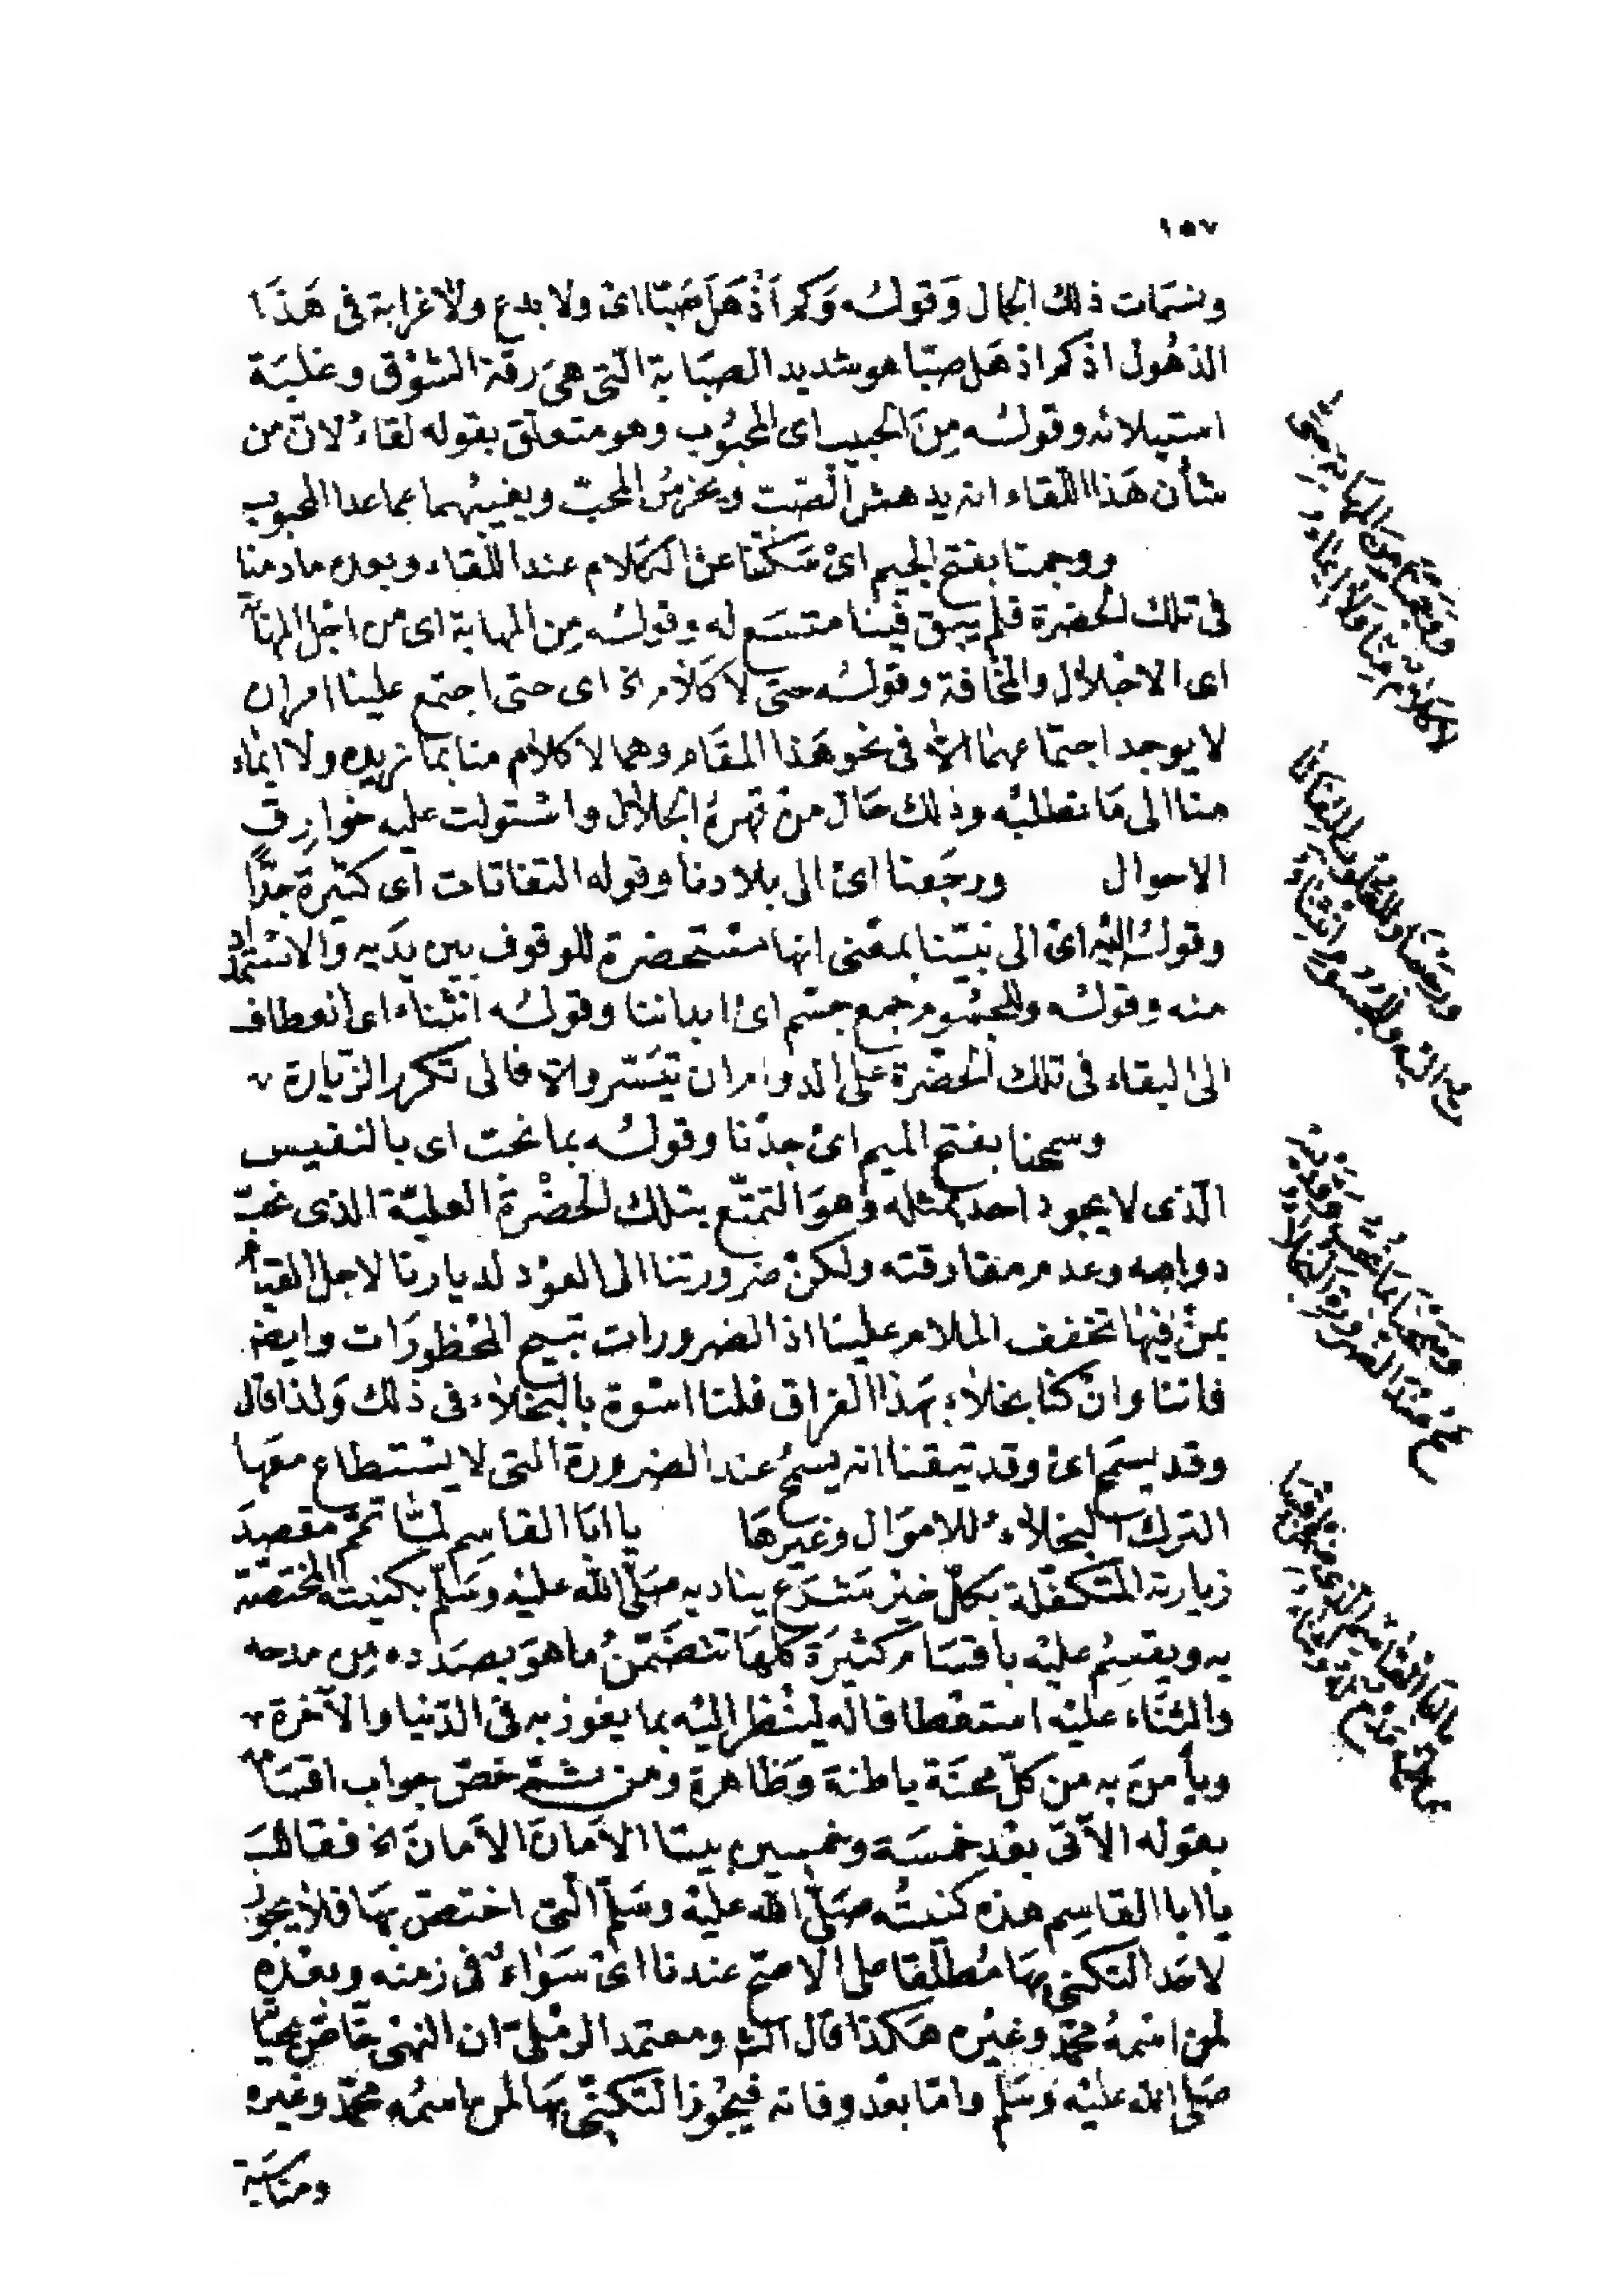 ١٥٧
ونسمات ذلك الجمال وَقولُه وَكم اَذْهَلَ صَبّا اى ولا بدع ولا غرابة فى هَذَا
الذهُول اذ كم اذهَل صبّا هو شديد الصبَابة التى هىَ رقة الشوْق وغلبَة
استيلائه وقولُه مِنَ الحبيب اى المحبُوب وهو متعلق بقوله لقاءُ لانّ من
شأن هَذا اللّقاء انه يدهش الصّبّ ويخرسُ المحبّ ويغيبهما عما عدا المحبوب
ووجمنا بفتح الجيم اىْ سَكتْنا عن الكَلام عند اللّقاء وبعده ما دمنا
فى تلك الحضرة فلم يبق فينا متسَع له وقولُه مِن المهابة اى من اجْل المهابة
اى الاجْلال والمخَافة وقولُه حتى لا كَلامَ الخ اى حتى اجتمع علينا امران
لا يوجد اجتماعهما الا فى نحو هَذا المقَام وهما لا كلام منا بما نريده ولا ايماء
منا الى مَا نطلبُه وذلك حَال منْ قهرهُ الجلال واسْتولت عليه خوارِق
الاحوال ورجَعنا اىْ الى بلادنا وقوله التفاتات اى كثيرَة جدًّا
وقولُ اليْه اىْ الى نبيّنا بمعْنى انها مسْتحضرة للوقوف بين يدَيه وَالاسْتمداد
منه وقولُه وللجسُوم جمع جسْم اىْ ابداننا وقولُه انثناء اى انعطاف
الى البقاء فى تلك الحَضْرة علَى الدوام ان تيَسّر والا فالى تكرر الزّيارة
وسمحنا بفتح الميم اىْ جدْنا وقولُه بما نحب اى بالنفيس
الّذى لا يجود احد بمثله وَهوَ التمتّع بتلك الحَضْرة العليّة الذى نحبّ
دوامه وعدم مفارقته ولكنْ ضرورتنا الى العوْد لديارنا لاجل القيام
بمنْ فيْهَا تخفف الملام علينا اذ الضرورات تبيح المحْظورَات وايضا
فاننا وانْ كنّا بخلاءَ بهَذا الفراق فلنا اسْوة بالبُخلاء فى ذلك وَلذا قال
وقد يسمَح اىْ وقد تيقنا انه يسمحُ عند الضرورة التى لا يسْتطاع معَها
الترك البخلاءُ للاموَال وغيرهَا يا ابَا القاسِم لمّا تمّ مقصِدَ
زيارته المتكفّلة بكلّ خيْر شَرَع يناديه صَلّى الله عليْه وسَلّم بكنيته المختصّة
به ويقسِم عليْه باقسَام كثيرَة كلهَا تتضَمّنُ ما هوَ بصَدده مِن مدحه
والثنَاء عليْه استعْطافا له لينْظر اليْه بما يفوز به فى الدّنيا والآخرة
ويأمنَ به من كلّ محنَة باطنة وَظَاهرة ومن ثمّ خصّ جواب اقسَامه
بقوله الآتى بعْد خمسَة وخمسين بيتا الاَمانَ الاَمانَ الخ فقالَ
يا ابا القاسِم هذه كنيتُه صَلّى الله عليْه وسَلّم الّتى اختصّ بهَا فلا يجوز
لاحَد التكنى بهَا مُطلَقا على الاصحّ عندنا اىْ سَوَاءٌ فى زمنه وبعْده
لمن اسْمهُ محمّد وغيْره هكذا قال الش ومعتمد الرمْلىّ ان النهْى خَاصّ بحيَاته
صَلى الله عليْه وَسَلم وامّا بعْد وفاته فيجُوز التكنّى بهَا لمن اسمُه محمّد وغيره
ومناسَبة
ووَجَمْنَا مِنَ المَهَابَةِ حَتى
لا كَلامٌ مِنّا وَلا اِيمَاءُ
ورَجَعْنَا وللقُلُوبِ التِفَاتَا
تٌ اليْه وللْجُسُومِ انْثِنَاءُ
وَسَمَحْنَا بمَا نُحِبُّ وَقَدْ يَسْـ
ـمَحُ عِنْدَ الضَّرُورَةِ البُخَلاءُ
يَا اَبَا القَاسِمِ الَّذِى ضِمْنَ اِقْسَا